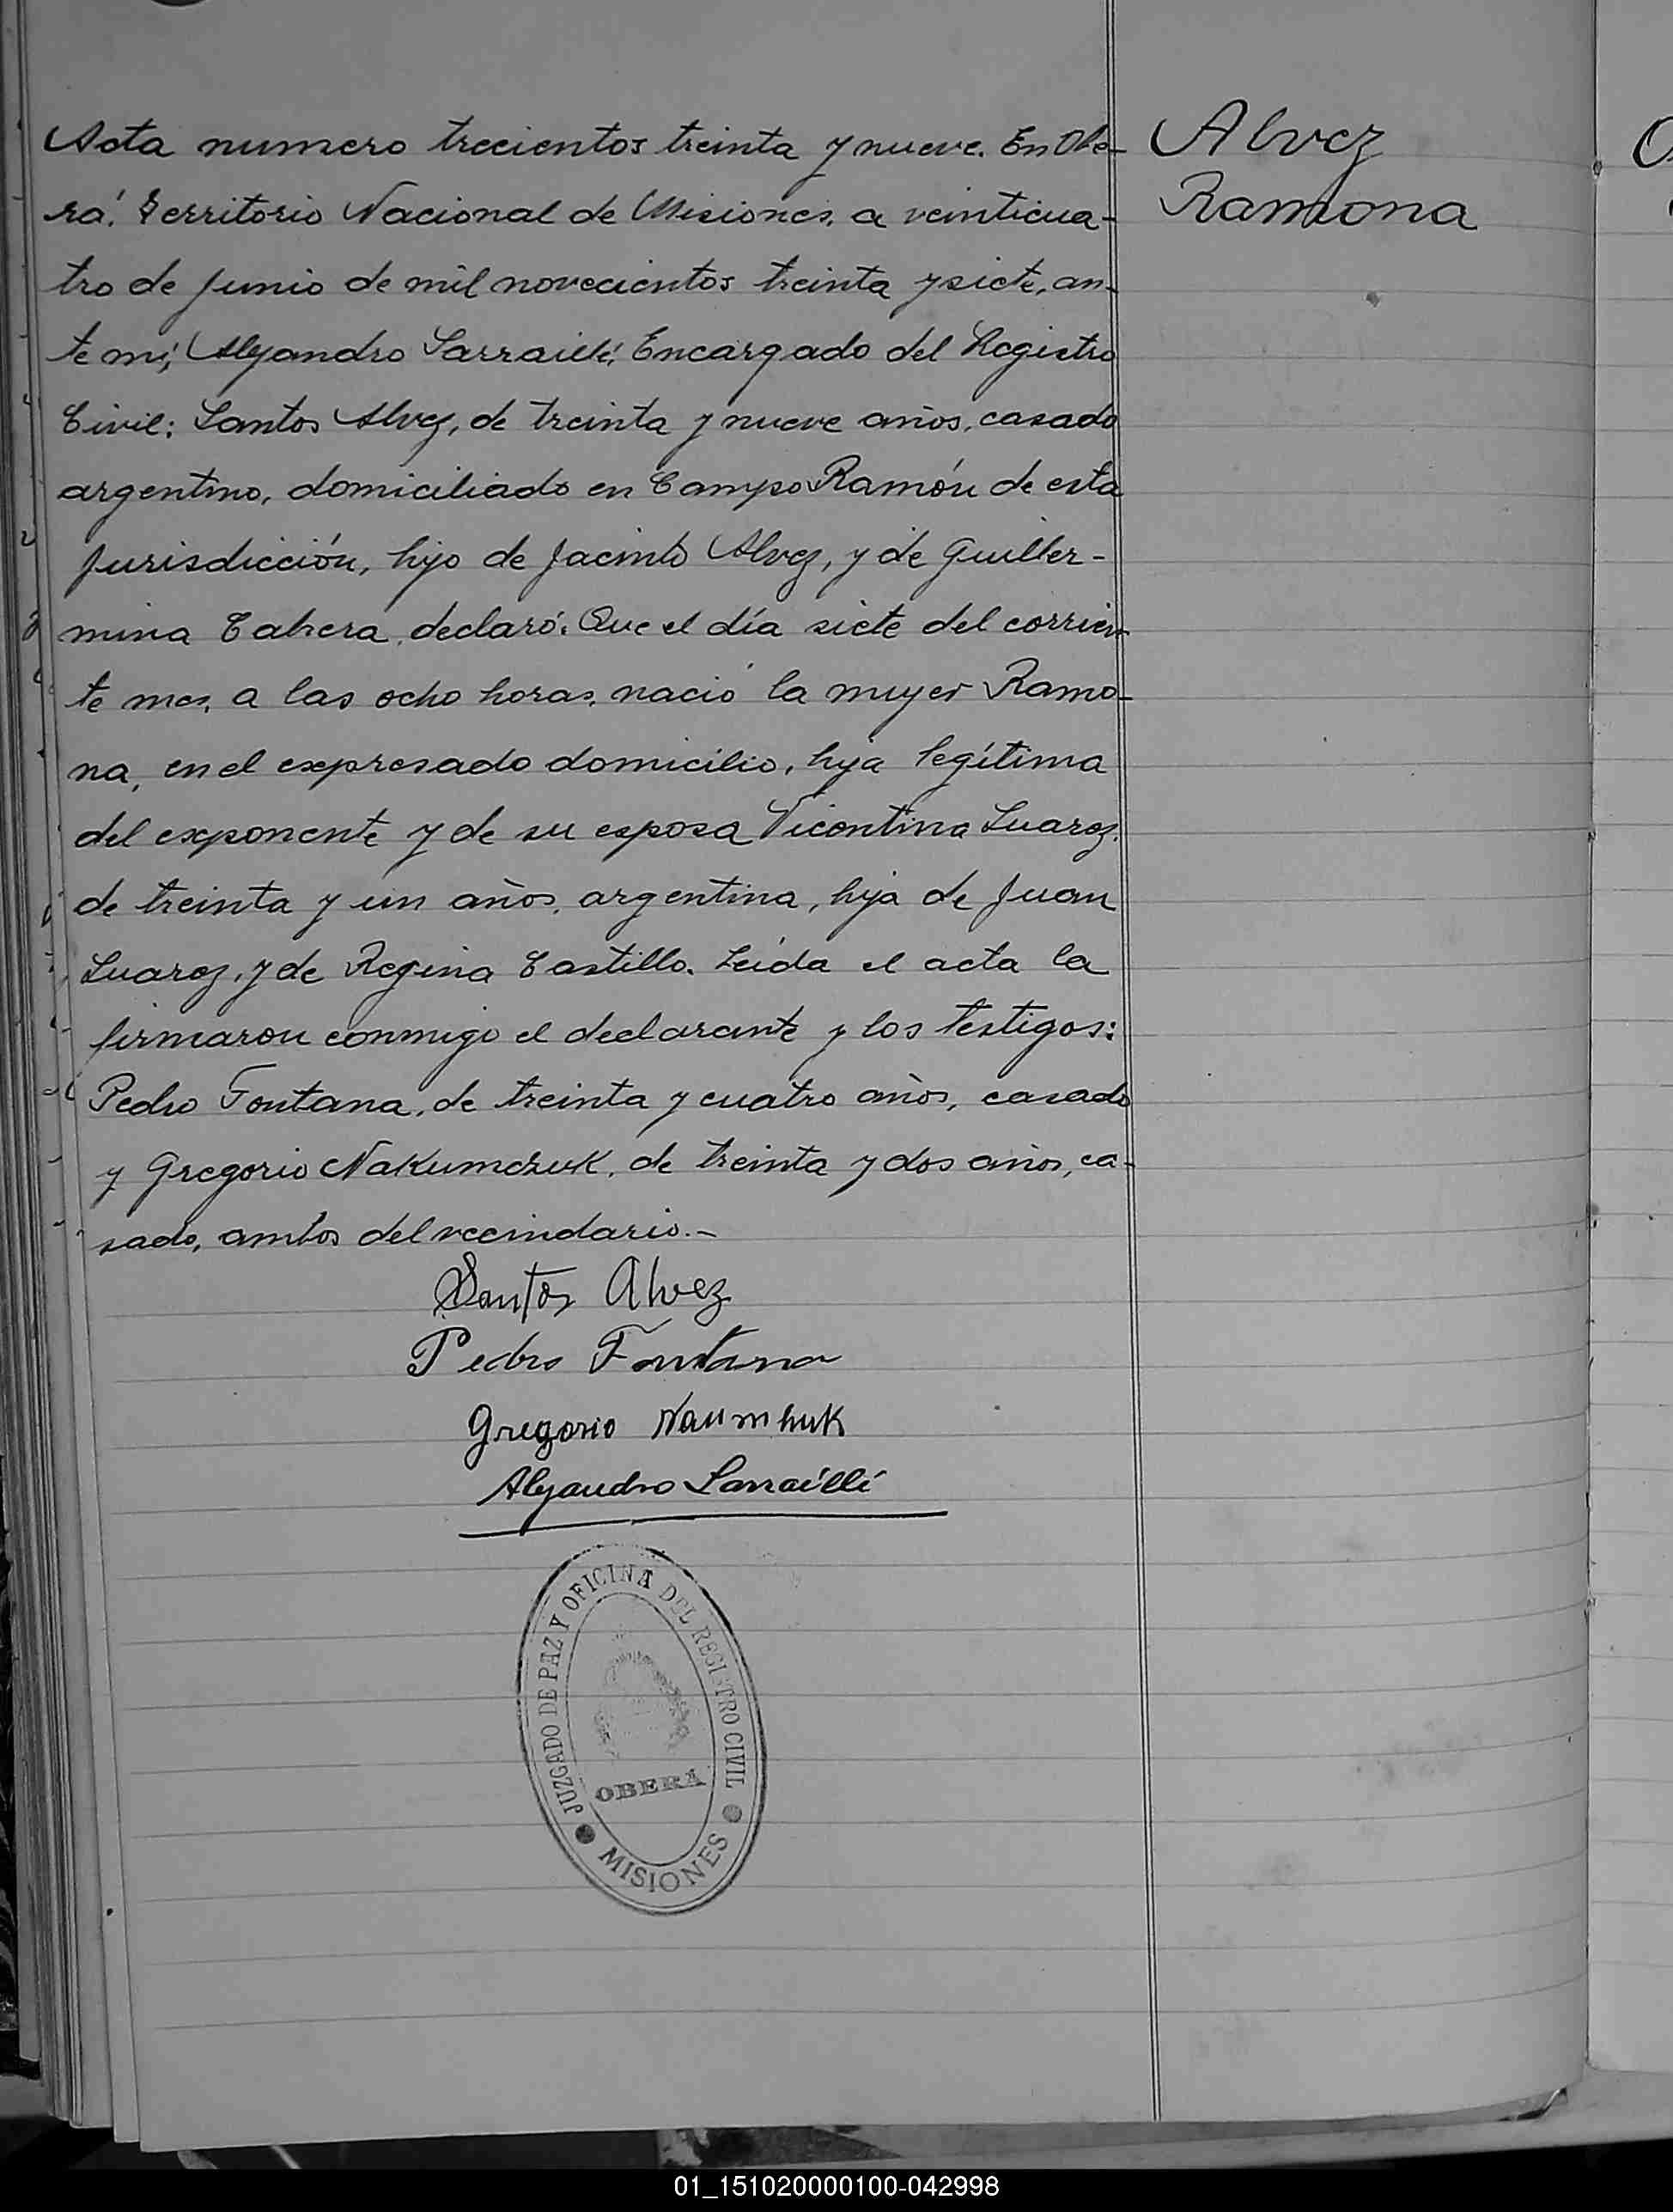 Acta numero trecientos treinta y nueve. En Obe-
rá. Territorio Nacional de Misiones, a veinticua-
tro de Junio de mil novecientos treinta y siete, an-
te mi, Alejandro Sarraillé, Encargado del Registro
Civil: Santos Alvez, de treinta y nueve años, casado
argentino, domiciliado en Campo Ramón de esta
Jurisdicción, hijo de Jacinto Alvez, y de Guiller-
mina Cabrera, declaró: Que el día siete del corrien-
te mes, a las ocho horas, nació la mujer Ramo-
na, en el expresado domicilio, hija legítima
del exponente y de su esposa Vicentina Suarez,
de treinta y un años, argentina, hija de Juan
Suarez, y de Regina Castillo. Leída el acta la
firmaron conmigo el declarante y los testigos:
Pedro Fontana, de treinta y cuatro años, casado
y Gregorio Nakumczuk, de treinta y dos años, ca-
sado, ambos del vecindario.-
Santos Alvez
Pedro Fontana
Gregorio Naumhuk
Alejandro Sarraillé
Alvez
Ramona
JUZGADO DE PAZ Y OFICINA DEL REGISTRO CIVIL
OBERÁ
MISIONES
01_151020000100-042998